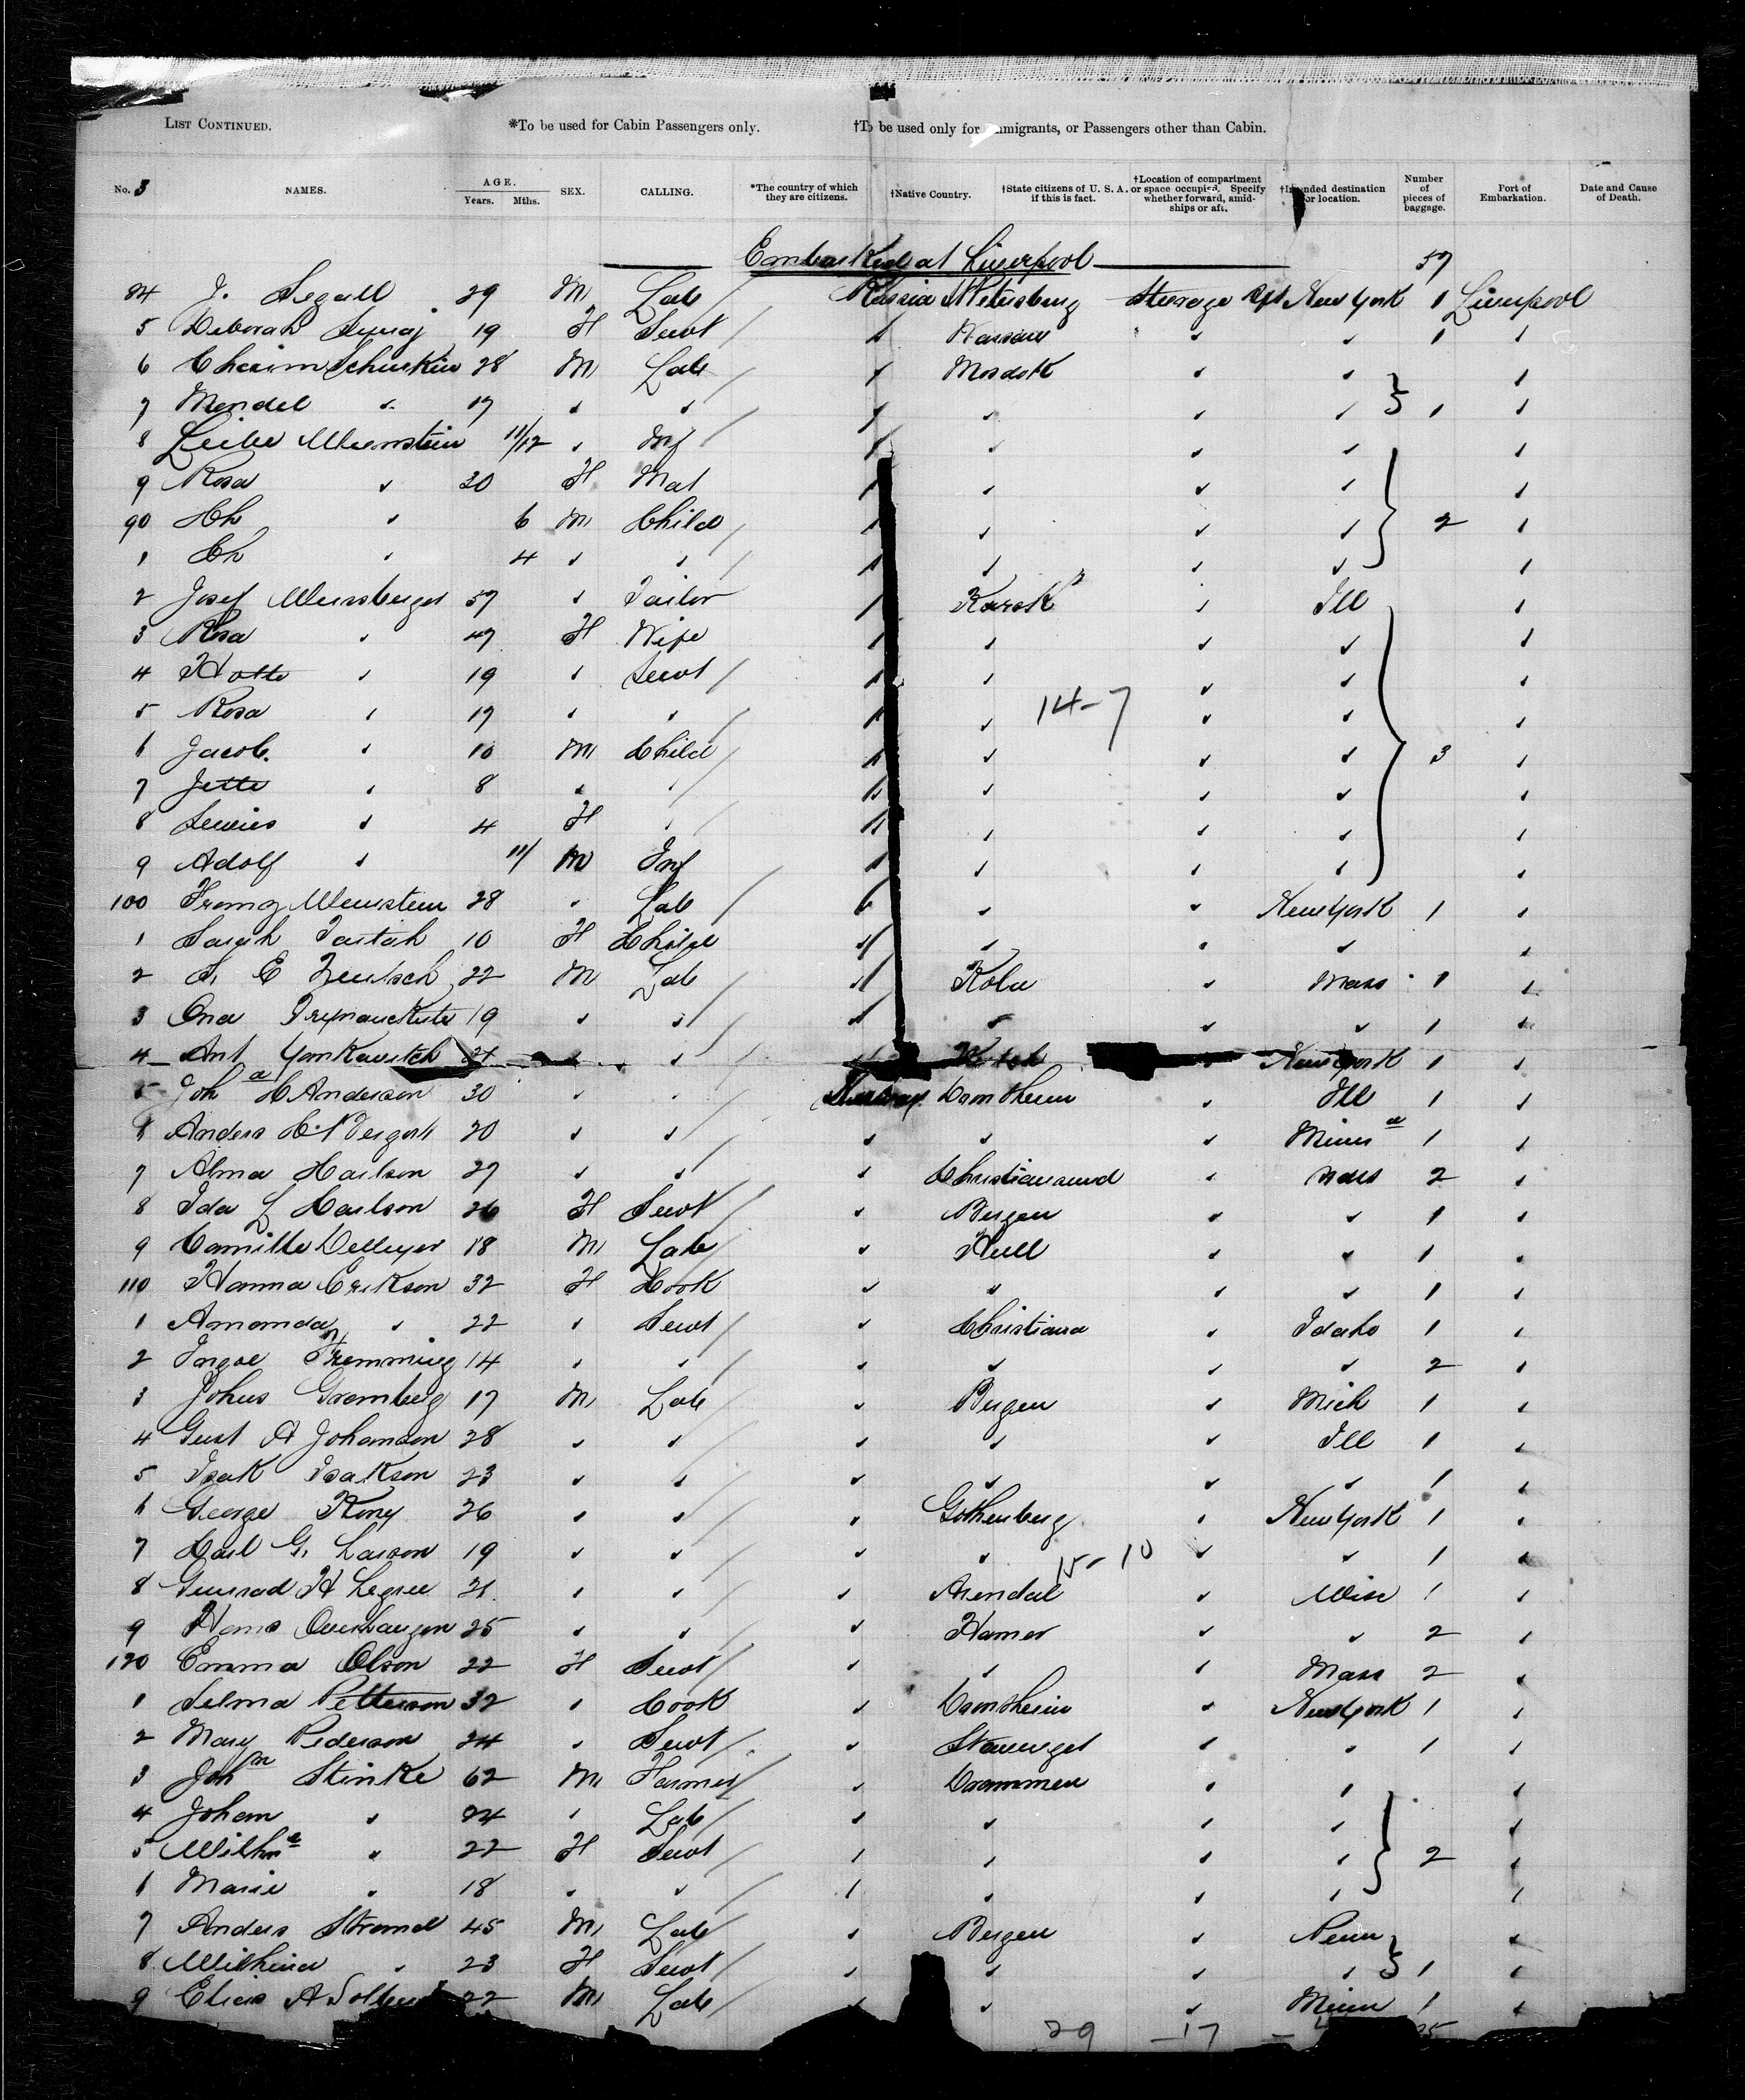 LIST CONTINUED. *To be used for Cabin Passengers only. †To be used only for mmigrants, or Passengers other than Cabin.
No. 3 NAMES. AGE. Years. Mths. SEX. CALLING. *The country of which they are citizens. †Native Country. †State citizens of U. S. A. if this is fact. †Location of compartment or space occupied. Specify whether forward, amid-ships or aft. †Intended destination or location. Number of pieces of baggage. Port of Embarkation. Date and Cause of Death.
Embarked at Liverpool 57
84 J. Segall 29 M Lab Russia Petersburg Steerage New York 1 Liverpool
5 Deborah 19 F Servt Warsaw ✓ ✓ 1 ✓
6 Chaim Schuskin 28 M Lab Mosdok ✓ ✓ ✓
7 Mendel ✓ 17 ✓ ✓ ✓ ✓ ✓ 1 ✓
8 Leibe 11/12 ✓ Inf ✓ ✓ ✓ ✓
9 Rosa ✓ 30 F Mat ✓ ✓ ✓ ✓
90 Ch ✓ 6 M Child ✓ ✓ ✓ 2 ✓
1 Ch ✓ 4 ✓ ✓ ✓ ✓ ✓ ✓
2 Josef Weinsberger 57 ✓ Tailor Kursk ✓ Ill ✓
3 Rosa ✓ 47 F Wife ✓ ✓ ✓ ✓
4 Hotte ✓ 19 ✓ Servt ✓ ✓ ✓ ✓
5 Rosa ✓ 17 ✓ ✓ ✓ 14-7 ✓ ✓ ✓
6 Jacob ✓ 10 M Child ✓ ✓ ✓ 3 ✓
7 Jette ✓ 8 ✓ ✓ ✓ ✓ ✓ ✓
8 ✓ 4 F ✓ ✓ ✓ ✓ ✓
9 Adolf ✓ 11/ M Inf ✓ ✓ ✓ ✓
100 Weinstein 28 ✓ Lab ✓ ✓ New York 1 ✓
1 Sarah 10 F Child ✓ ✓ ✓ ✓
2 S. E 22 M Lab ✓ Mass 1 ✓
3 Ona 19 ✓ ✓ ✓ ✓ ✓ 1 ✓
4 Ant Yankavitch 21 ✓ ✓ New York 1 ✓
5 Joh a H Anderson 30 ✓ ✓ Norway Drontheim ✓ Ill 1 ✓
6 Anders H. 20 ✓ ✓ ✓ ✓ ✓ Minn 1 ✓
7 Alma Carlson 27 ✓ ✓ ✓ Christiansund ✓ Mass 2 ✓
8 Ida L Carlson 26 F Servt ✓ Bergen ✓ ✓ 1 ✓
9 Camille 18 M Lab ✓ Hull ✓ ✓ 1 ✓
110 Hanna Erikson 32 F Cook ✓ " ✓ ✓ 1 ✓
1 Amanda ✓ 22 ✓ Servt ✓ Christiana ✓ Idaho 1 ✓
2 Fremming 14 ✓ ✓ ✓ ✓ ✓ ✓ 2 ✓
3 Johus Gromberg 17 M Lab ✓ Bergen ✓ Mich 1 ✓
4 Gust A Johanson 28 ✓ ✓ ✓ ✓ ✓ Ill 1 ✓
5 Isak Isakson 23 ✓ ✓ ✓ ✓ ✓ ✓ 1 ✓
6 George 26 ✓ ✓ ✓ Gothenberg ✓ New York 1 ✓
7 Carl G. Larson 19 ✓ ✓ ✓ ✓ 15-10 ✓ ✓ 1 ✓
8 H 21 ✓ ✓ ✓ Arendal ✓ Wisc 1 ✓
9 Hans 25 ✓ ✓ ✓ Hamer ✓ ✓ 2 ✓
120 Emma Olson 22 F Servt ✓ ✓ ✓ Mass 2 ✓
1 Selma Petterson 32 ✓ Cook ✓ Drontheim ✓ New York 1 ✓
2 Mary Pederson 24 ✓ Servt ✓ ✓ ✓ 1 ✓
3 Johan Stinke 62 M Farmer ✓ Drammen ✓ ✓ ✓
4 Johan ✓ 24 ✓ Lab ✓ ✓ ✓ ✓ ✓
5 Wilhne ✓ 22 F Servt ✓ ✓ ✓ ✓ 2 ✓
6 Marie ✓ 18 ✓ ✓ ✓ ✓ ✓ ✓ ✓
7 Anders Strand 45 M Lab ✓ Bergen ✓ Penn ✓
8 Wilhina ✓ 23 F Servt ✓ ✓ ✓ ✓ 1 ✓
9 Elias A 22 M Lab ✓ ✓ ✓ Minn 1 ✓
29 -17